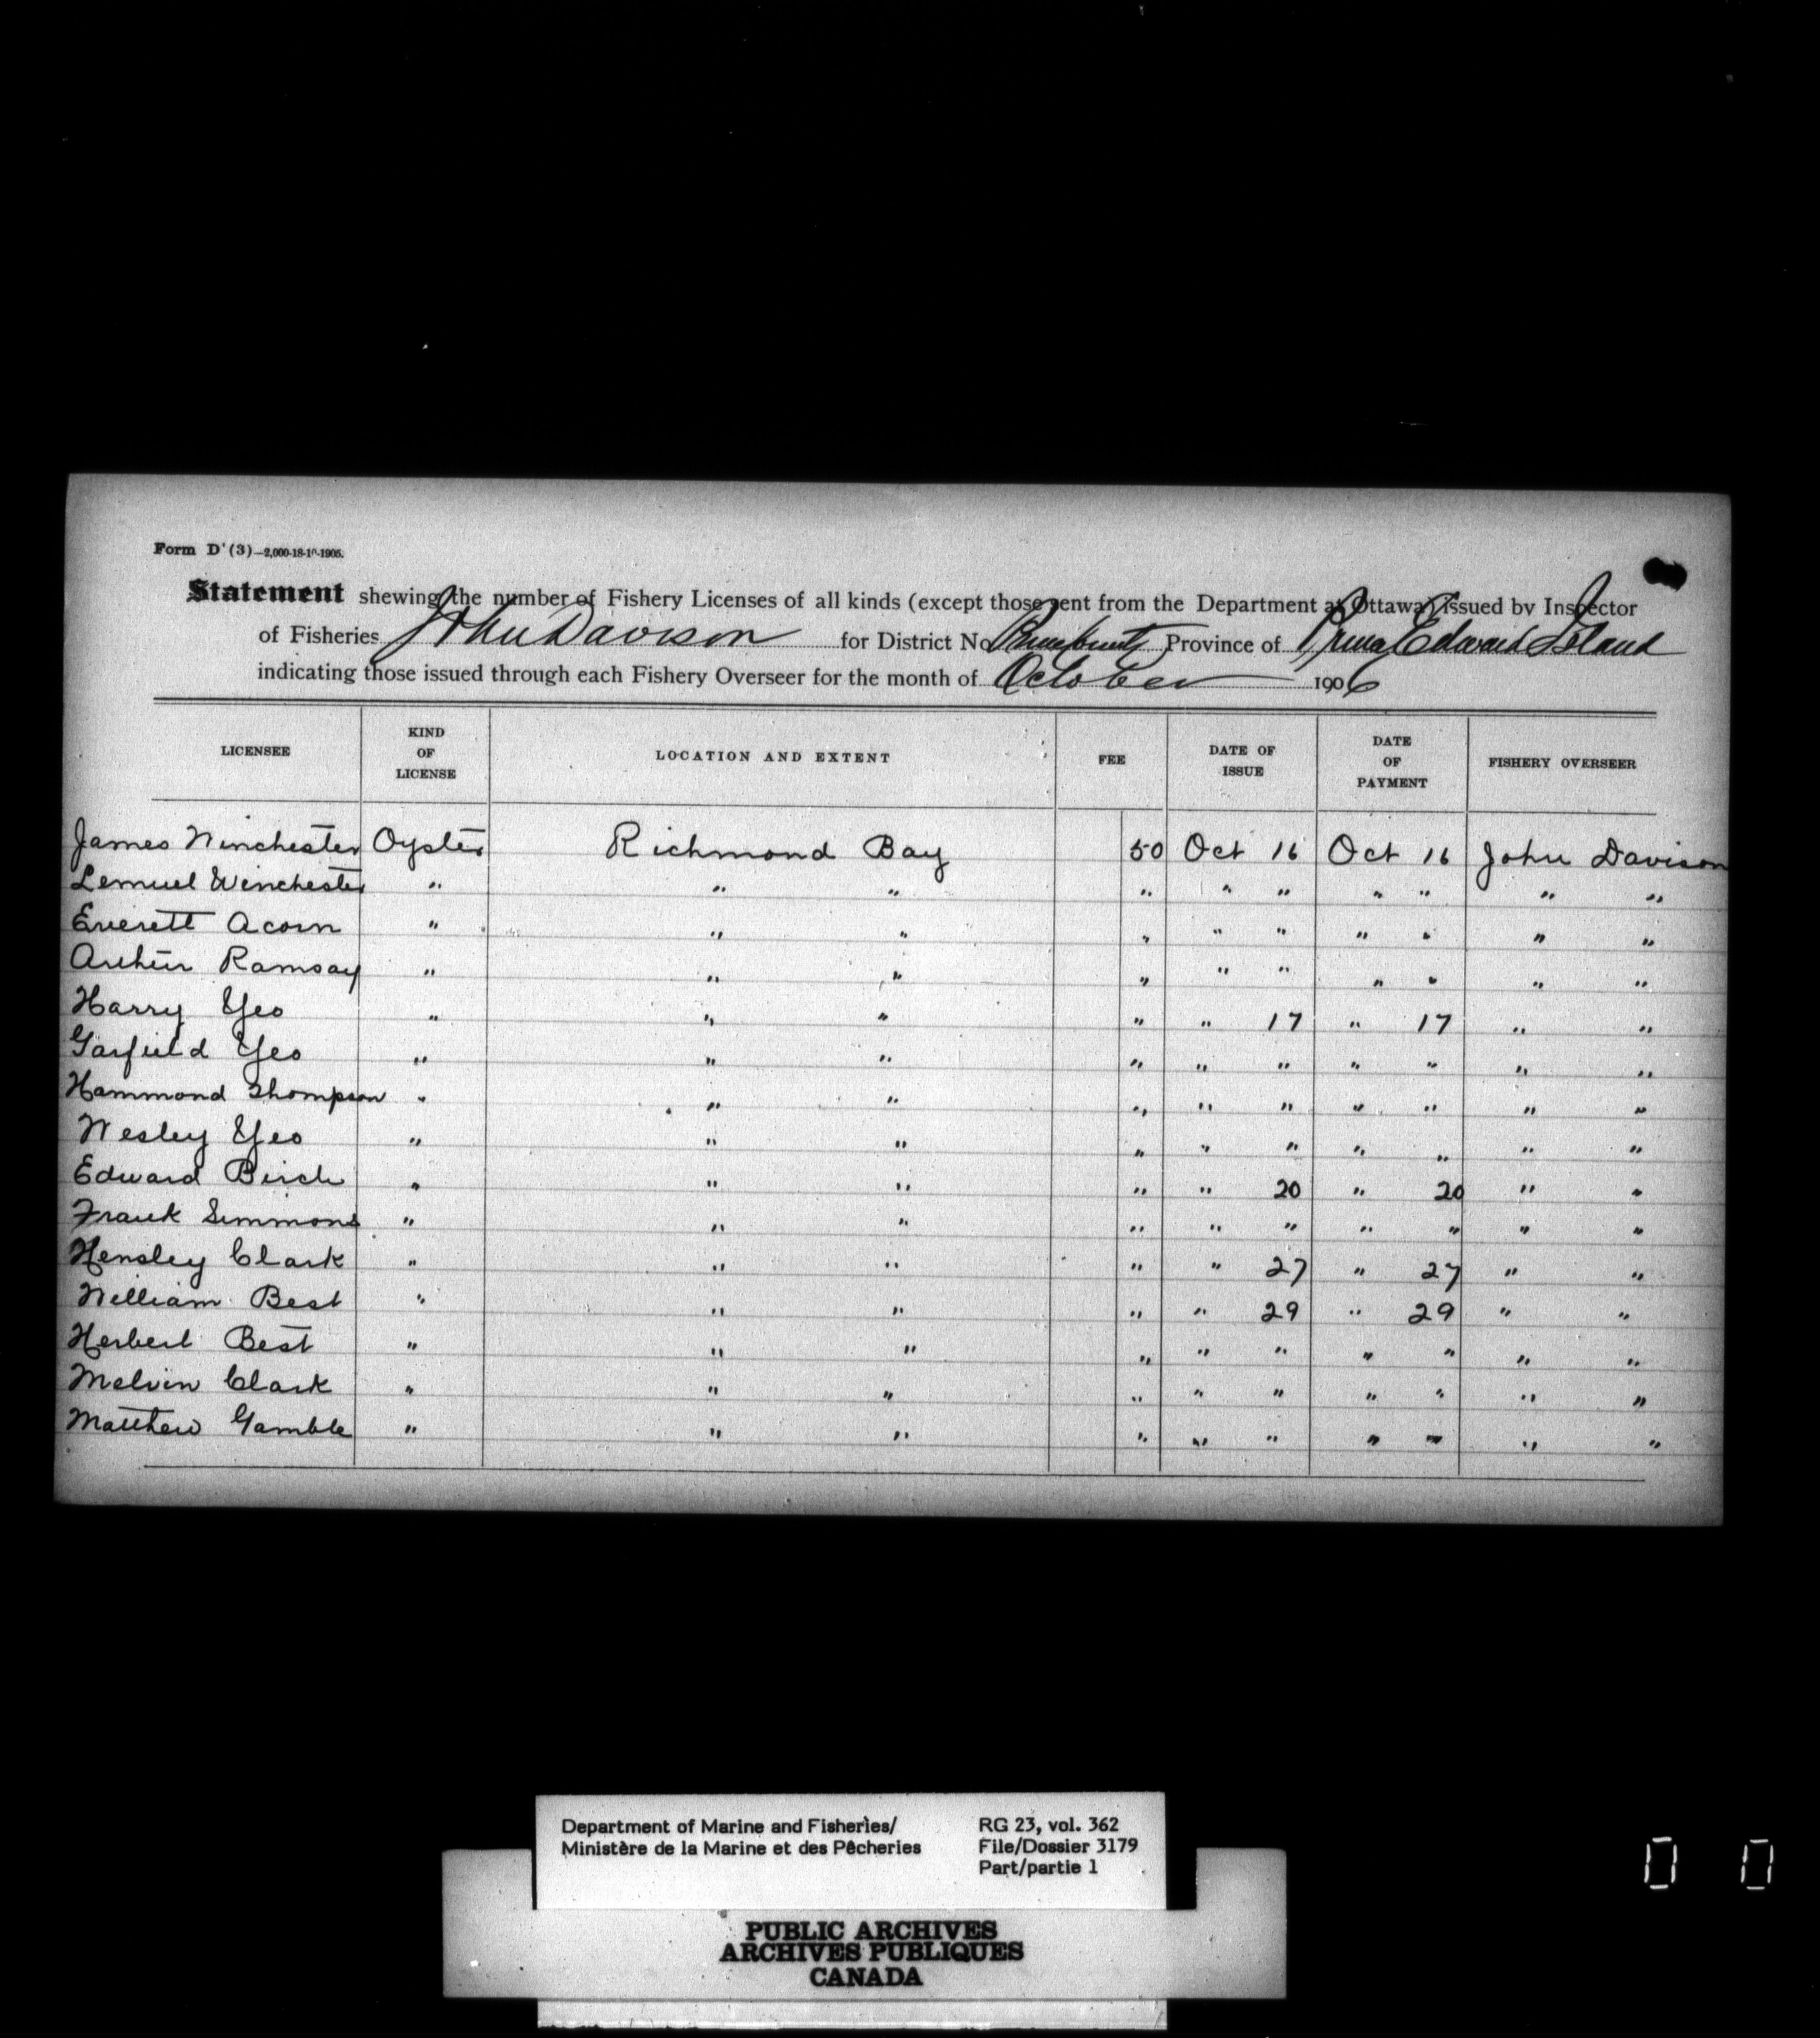 Form D'(3)—2,000-18-10-1905.
Statement shewing the number of Fishery Licenses of all kinds (except those sent from the Department at Ottawa) issued by Inspector
of Fisheries John Davison for District No Province of Prince Edward Island
indicating those issued through each Fishery Overseer for the month of October 1906
LICENSEE KIND OF LICENSE LOCATION AND EXTENT FEE DATE OF ISSUE DATE OF PAYMENT FISHERY OVERSEER
James Winchester Oyster Richmond Bay 50 Oct 16 Oct 16 John Davison
Lemuel Winchester " " " " " " " " " "
Everett Acorn " " " " " " " " " "
Arthur Ramsay " " " " " " " " " "
Harry Yeo " " " " " 17 " 17 " "
Garfield Yeo " " " " " " " " " "
Hammond Thompson " " " " " " " " " "
Wesley Yeo " " " " " " " " " "
Edward Birch " " " " " 20 " 20 " "
Frank Simmons " " " " " " " " " "
Hensley Clark " " " " " 27 " 27 " "
William Best " " " " " 29 " 29 " "
Herbert Best " " " " " " " " " "
Melvin Clark " " " " " " " " " "
Matthew Gamble " " " " " " " " " "
Department of Marine and Fisheries/ RG 23, vol. 362
Ministère de la Marine et des Pêcheries File/Dossier 3179
Part/partie 1
PUBLIC ARCHIVES
ARCHIVES PUBLIQUES
CANADA
0 0